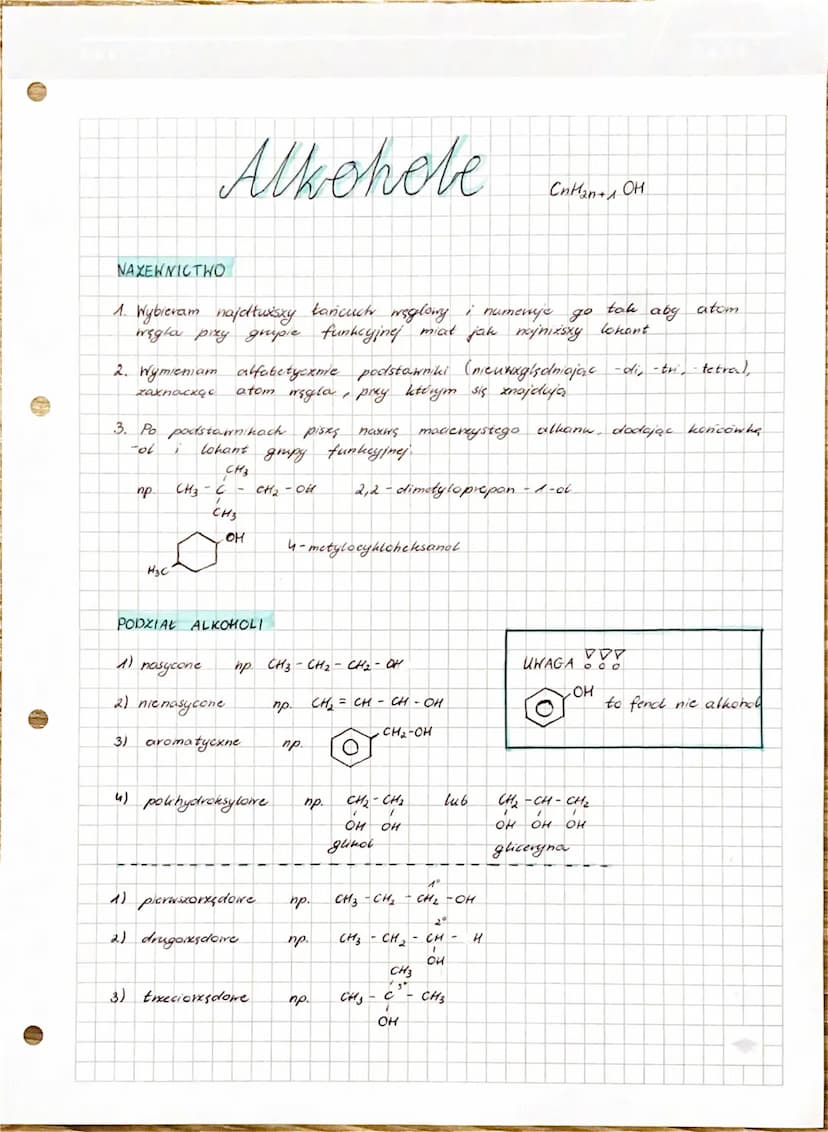 Alkohole
CnH2n+1 OH
NAZEWNICTWO
1. Wybieram najdłuższy łańcuch węglowy i numeruję go tak aby atom
węgla przy grupie funkcyjnej miał jak najniższy lokant
2. Wymieniam alfabetycznie podstawniki (nieuwzględniając -di, -tri, -tetra),
zaznacząc atom węgla, przy którym się znajdują
3. Po podstawnikach piszę nazwę macierzystego alkanu, dodając końcówkę
-ol i lokant grupy funkcyjnej.
CH3
np. CH3 - C - CH2 - OH 2,2 - dimetylopropan - 1-ol
CH3
OH
4-metylocykloheksanol
H3C
PODZIAŁ ALKOHOLI
1) nasycone np. CH3 - CH2 - CH2 - OH
2) nienasycone np. CH2 = CH - CH - OH
3) aromatyczne np. CH2-OH
UWAGA !!!
OH
to fenol nie alkohol
4) polihydroksylowe np. CH2 - CH2 lub CH2 - CH - CH2
OH OH OH OH OH
glikol gliceryna
1°
1) pierwszorzędowe np. CH3 - CH2 - CH2 - OH
2°
2) drugorzędowe np. CH3 - CH2 - CH - H
OH
CH3
3°
3) trzeciorzędowe np. CH3 - C - CH3
OH